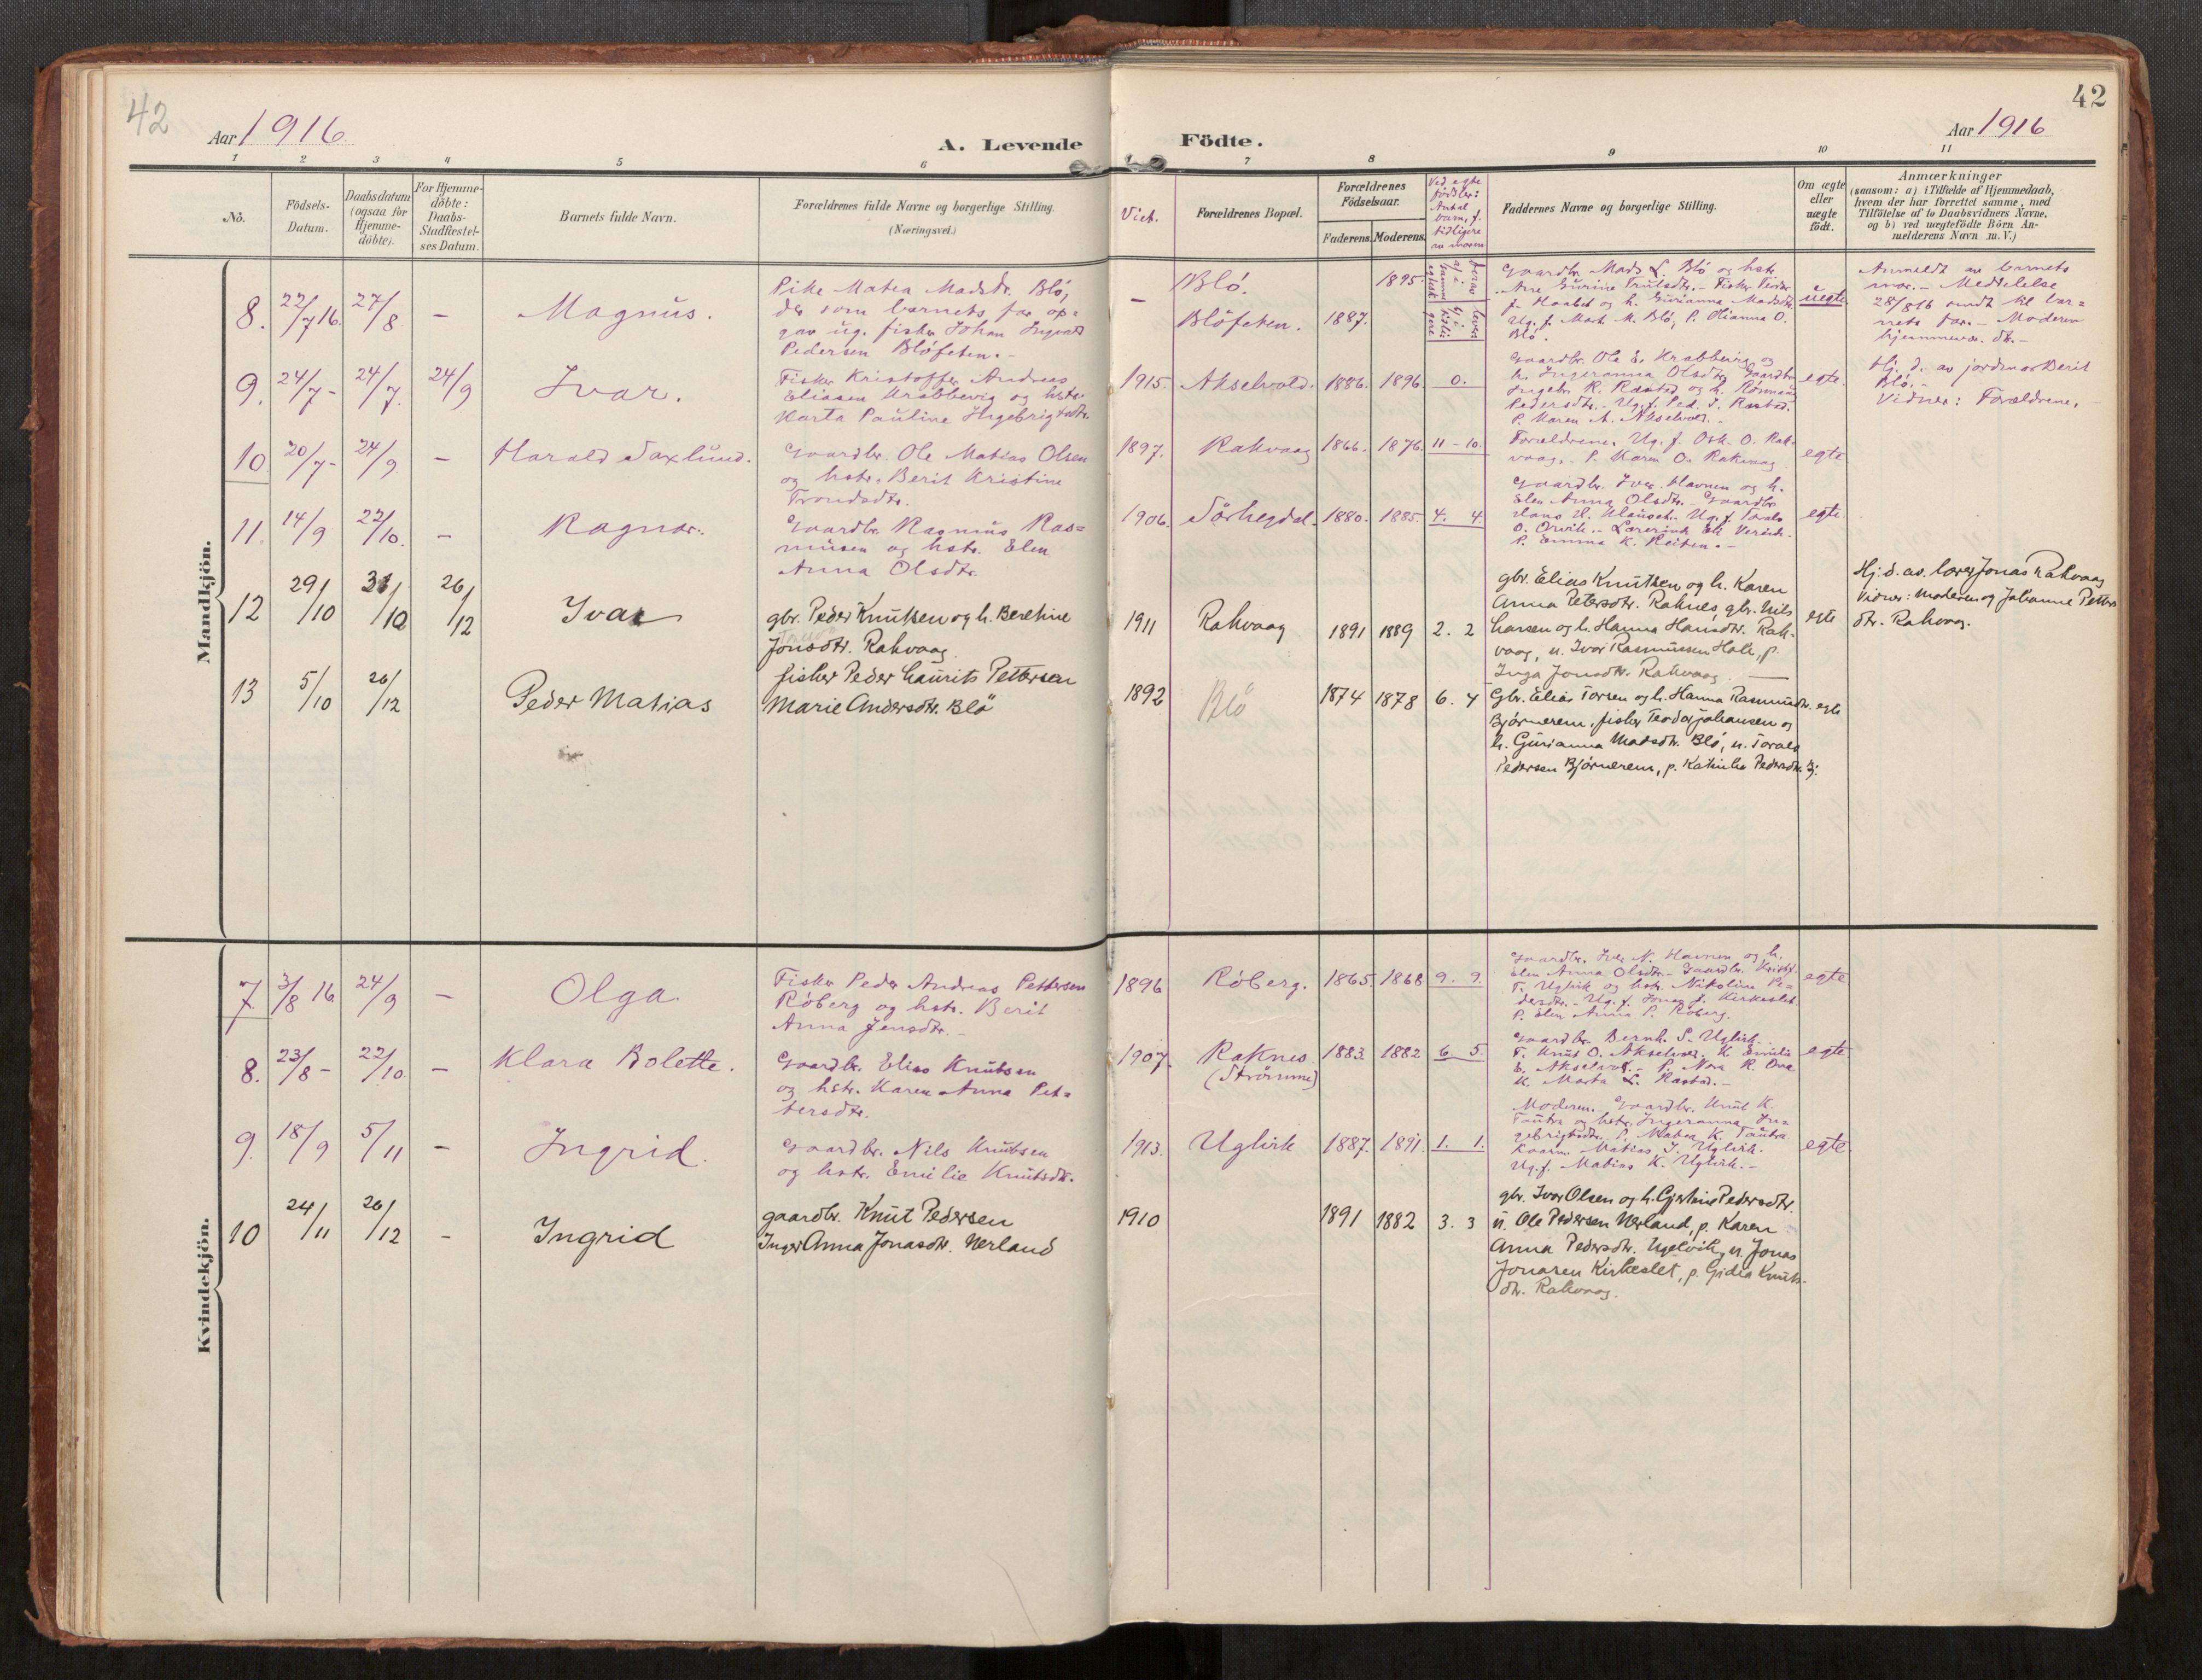 42
42
Aar 1916
A. Levende
Födte.
Aar 1916
1 2 3 4 5 6 7 8 9 10 11
No.
Födsels-
Datum.
Daabsdatum
(ogsaa for
Hjemme-
döbte).
For Hjemme-
döbte:
Daabs-
Stadfæstel-
ses Datum.
Barnets fulde Navn.
Forældrenes fulde Navne og borgerlige Stilling.
(Næringsvei.)
Viet.
Forældrenes Bopæl.
Forældrenes
Födselsaar.
Faderens. Moderens.
Ved egte
fødsler:
Antal
barn, f.
tidligere
Faddernes Navne og borgerlige Stilling.
Om ægte
eller
uægte
födt.
Anmærkninger
(saasom: a) i Tilfælde af Hjemmedaab,
hvem der har forrettet samme, med
Tilföielse af to Daabsvidners Navne,
og b) ved uægtefödte Börn An-
melderens Navn m.V.)
Mandkjön.
8. 22/7 16. 27/8 - Magnus.
Pike Matea Madsdr. Blö,
der som barnets far op=
gav ug. fisker Johan Ingvald
Pedersen Blöfeten.-
- Blö. 1895.
Blöfeten. 1887.
Gaardbr. Mads L. Blö og hstr.
Ane Gurine Trulsdtr. - Fisker Peder
J. Haabet og h. Gurianna Madsdtr.
Ug. f. Mart. M. Blö, P. Olianna O.
Blö.
uegte.
Anmeldt av barnets
mor. - Meddelelse
28/8 16 sendt til bar=
nets far. - Moderen
hjemmevær. dtr.-
9. 24/7 - 24/7. 24/9 Ivar.
Fisker Kristoffer Andreas
Eliasen Krabbevig og hstr.
Marta Pauline Ingebrigtsdtr.
1915. Akselvold. 1886. 1896. 0.
Gaardbr. Ole E. Krabbevig og
h. Ingeranna Olsdtr. Gaardbr.
Ingebr. R. Rastad og h. Rönnaug
Pedersdtr. - Ug. f. Ped. I. Rastad.
P. Maren A. Akselvold.-
egte.
Hj. d. av jordmor Berit
Blö.-
Vidner: Forældrene.
10. 20/7 - 24/9. - Harald Saxlund.
Gaardbr. Ole Matias Olsen
og hstr. Berit Kristine
Trondsdtr.
1897. Rakvaag 1866. 1876. 11 - 10.
Forældrene. Ug. f. Osk. O. Rak-
vaag. - P. Karen O. Rakvaag
egte
11. 14/9 22/10. - Ragnar.
Gaardbr. Ragnus Ras=
musen og hstr. Elen
Anna Olsdtr.
1906. Sörhegdal. 1880. 1885. 4. 4.
Gaardbr. Iver Havnen og h.
Elen Anna Olsdtr. Gaardbr.
Hans H. Klauset. Ug. f. Torald
O. Orvik. -
P. Emma K. Reiten. -
egte.
12 29/10 31/10 26/12 Ivar
gbr. Peder Knutsen og h. Berethine
Jonsdtr. Rakvaag.
1911 Rakvaag 1891 1889 2. 2
gbr. Elias Knutsen og h. Karen
Anna Petersdtr. Raknes, gbr. Nils
Larsen og h. Hanna Hansdtr. Rak-
vaag, u. Ivar Rasmussen Hole, p.
Inga Jonsdtr. Rakvaag.
egte
Hj. d. av. lærer Jonas Rakvaag
Vidner: Moderen og Johanne Petters
dtr. Rakvaag.
13 5/10 26/12 Peder Matias
fisker Peder Laurits Pettersen
Marie Andersdtr. Blö
1892 Blö 1874 1878 6. 4
Gbr. Elias Torsen og h. Hanna Rasmusdtr.
Björnerem, fisker Teodor Johansen og
h. Gurianna Madsdtr. Blö, u. Torald
Pedersen Björnerem, p. Katinka Pedersdtr. Bj.
egte
Kvindekjön.
7. 3/8 16. 24/9 - Olga.
Fisker Peder Andreas Pettersen
Röberg og hstr. Berit
Anna Jensdtr. -
1896 Röberg. 1865. 1868 9. 9.
Gaardbr. Iver N. Havnen og h.
Elen Anna Olsdtr. - Gaardbr. Kristof.
T. Uglvik og hstr. Nikoline Pe=
dersdtr. - Ug. f. Jonas J. Kirkeslet.
P. Elen Anna P. Röberg.
egte
8. 23/8 - 22/10. - Klara Bolette.
Gaardbr. Elias Knutsen
og hstr. Karen Anna Pet=
tersdtr.
1907. Raknes 1883. 1882 6. 5.
(Strömme)
Gaardbr. Bernh. S. Uglvik.
F. Knut O. Akselvold. K. Emilie
E. Akselvold. - P. Nora R. Ona
K. Marta L. Rastad. -
egte
9. 18/9 5/11 - Ingrid.
Gaardbr. Nils Knutsen
og hstr. Emilie Knutsdtr.
1913. Uglvik 1887. 1891. 1. 1.
Moderen. Gaardbr. Knut K.
Tautra og hstr. Ingeranna In=
gebrigtsdtr. P. Maben K. Tautra
Kvarm. Matias J. Uglvik.
Ug. f. Matias K. Uglvik. -
egte.
10 24/11 26/12 - Ingrid
gaardbr. Knut Pedersen
Inger Anna Jonasdtr. Nerland
1910 1891 1882 3. 3
gbr. Ivar Olsen og h. Gjertine Pedersdtr.
u. Ole Pedersen Nerland, p. Karen
Anna Pedersdtr. Ugelvik, u. Jonas
Jonasen Kirkeslet, p. Gidia Knuts-
dtr. Rakvaag.